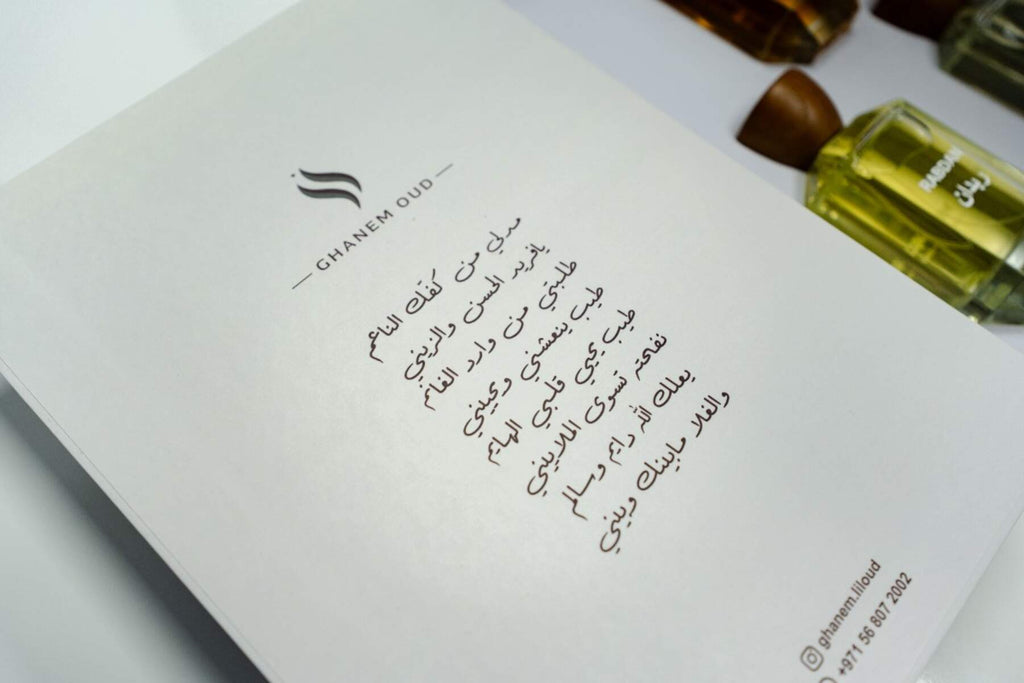 GHANEM OUD
مدلي من كفك الناعم
يا فريد الحسن والزيني
طلبتي من وارد الغانم
طيب ينعشني ويحييني
طيب يحيي قلبي الهايم
نفحته تسوى الملاييني
يعلك الله دايم وسالم
والغلا مابينك وبيني
ghanem.liloud
+971 56 807 2002
RABDAN
ربدان